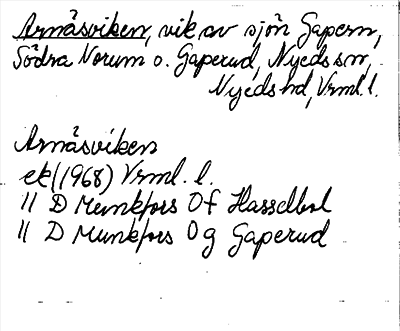 Arnäsviken, vik av sjön Gapern,
Södra Norum o. Gaperud, Nyeds sn,
Nyeds hd, Vrml. l.
Arnäsviken
ek (1968) Vrml. l.
11 D Munkfors 0f Hasselbol
11 D Munkfors 0g Gaperud